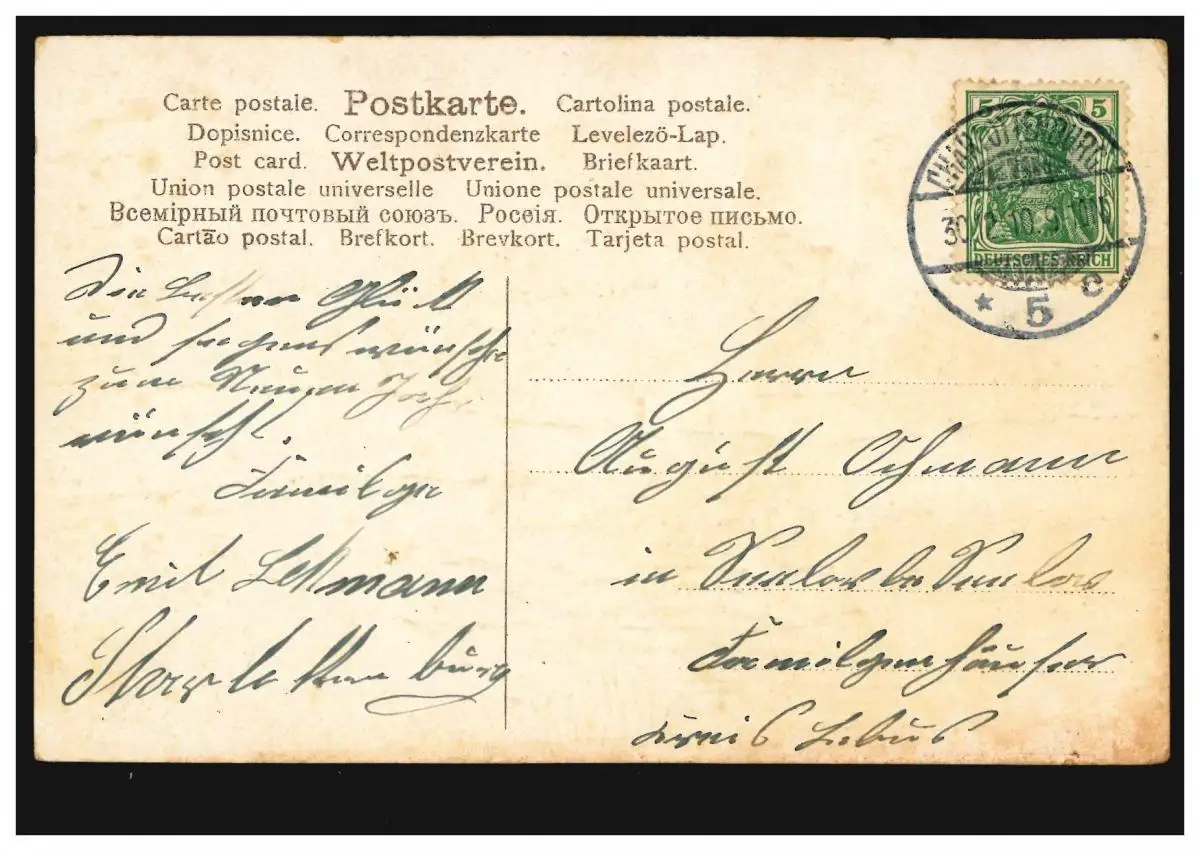 Carte postale. Postkarte. Cartolina postale.
Dopisnice. Correspondenzkarte Levelezö-Lap.
Post card. Weltpostverein. Briefkaart.
Union postale universelle Unione postale universale.
Всемірный почтовый союзъ. Росеія. Открытое письмо.
Cartão postal. Brefkort. Brevkort. Tarjeta postal.
5 5
DEUTSCHES REICH
CHARLOTTENBURG
30 10.9
* 5 c
Die besten Glück
und segens wünsche
zum Neuen Jahr
wünscht.
Familge
Emil Lehmann
Sharlottenburg
Herrn
August Ochmann
in
Familgenhäuser
Kreis Lebus